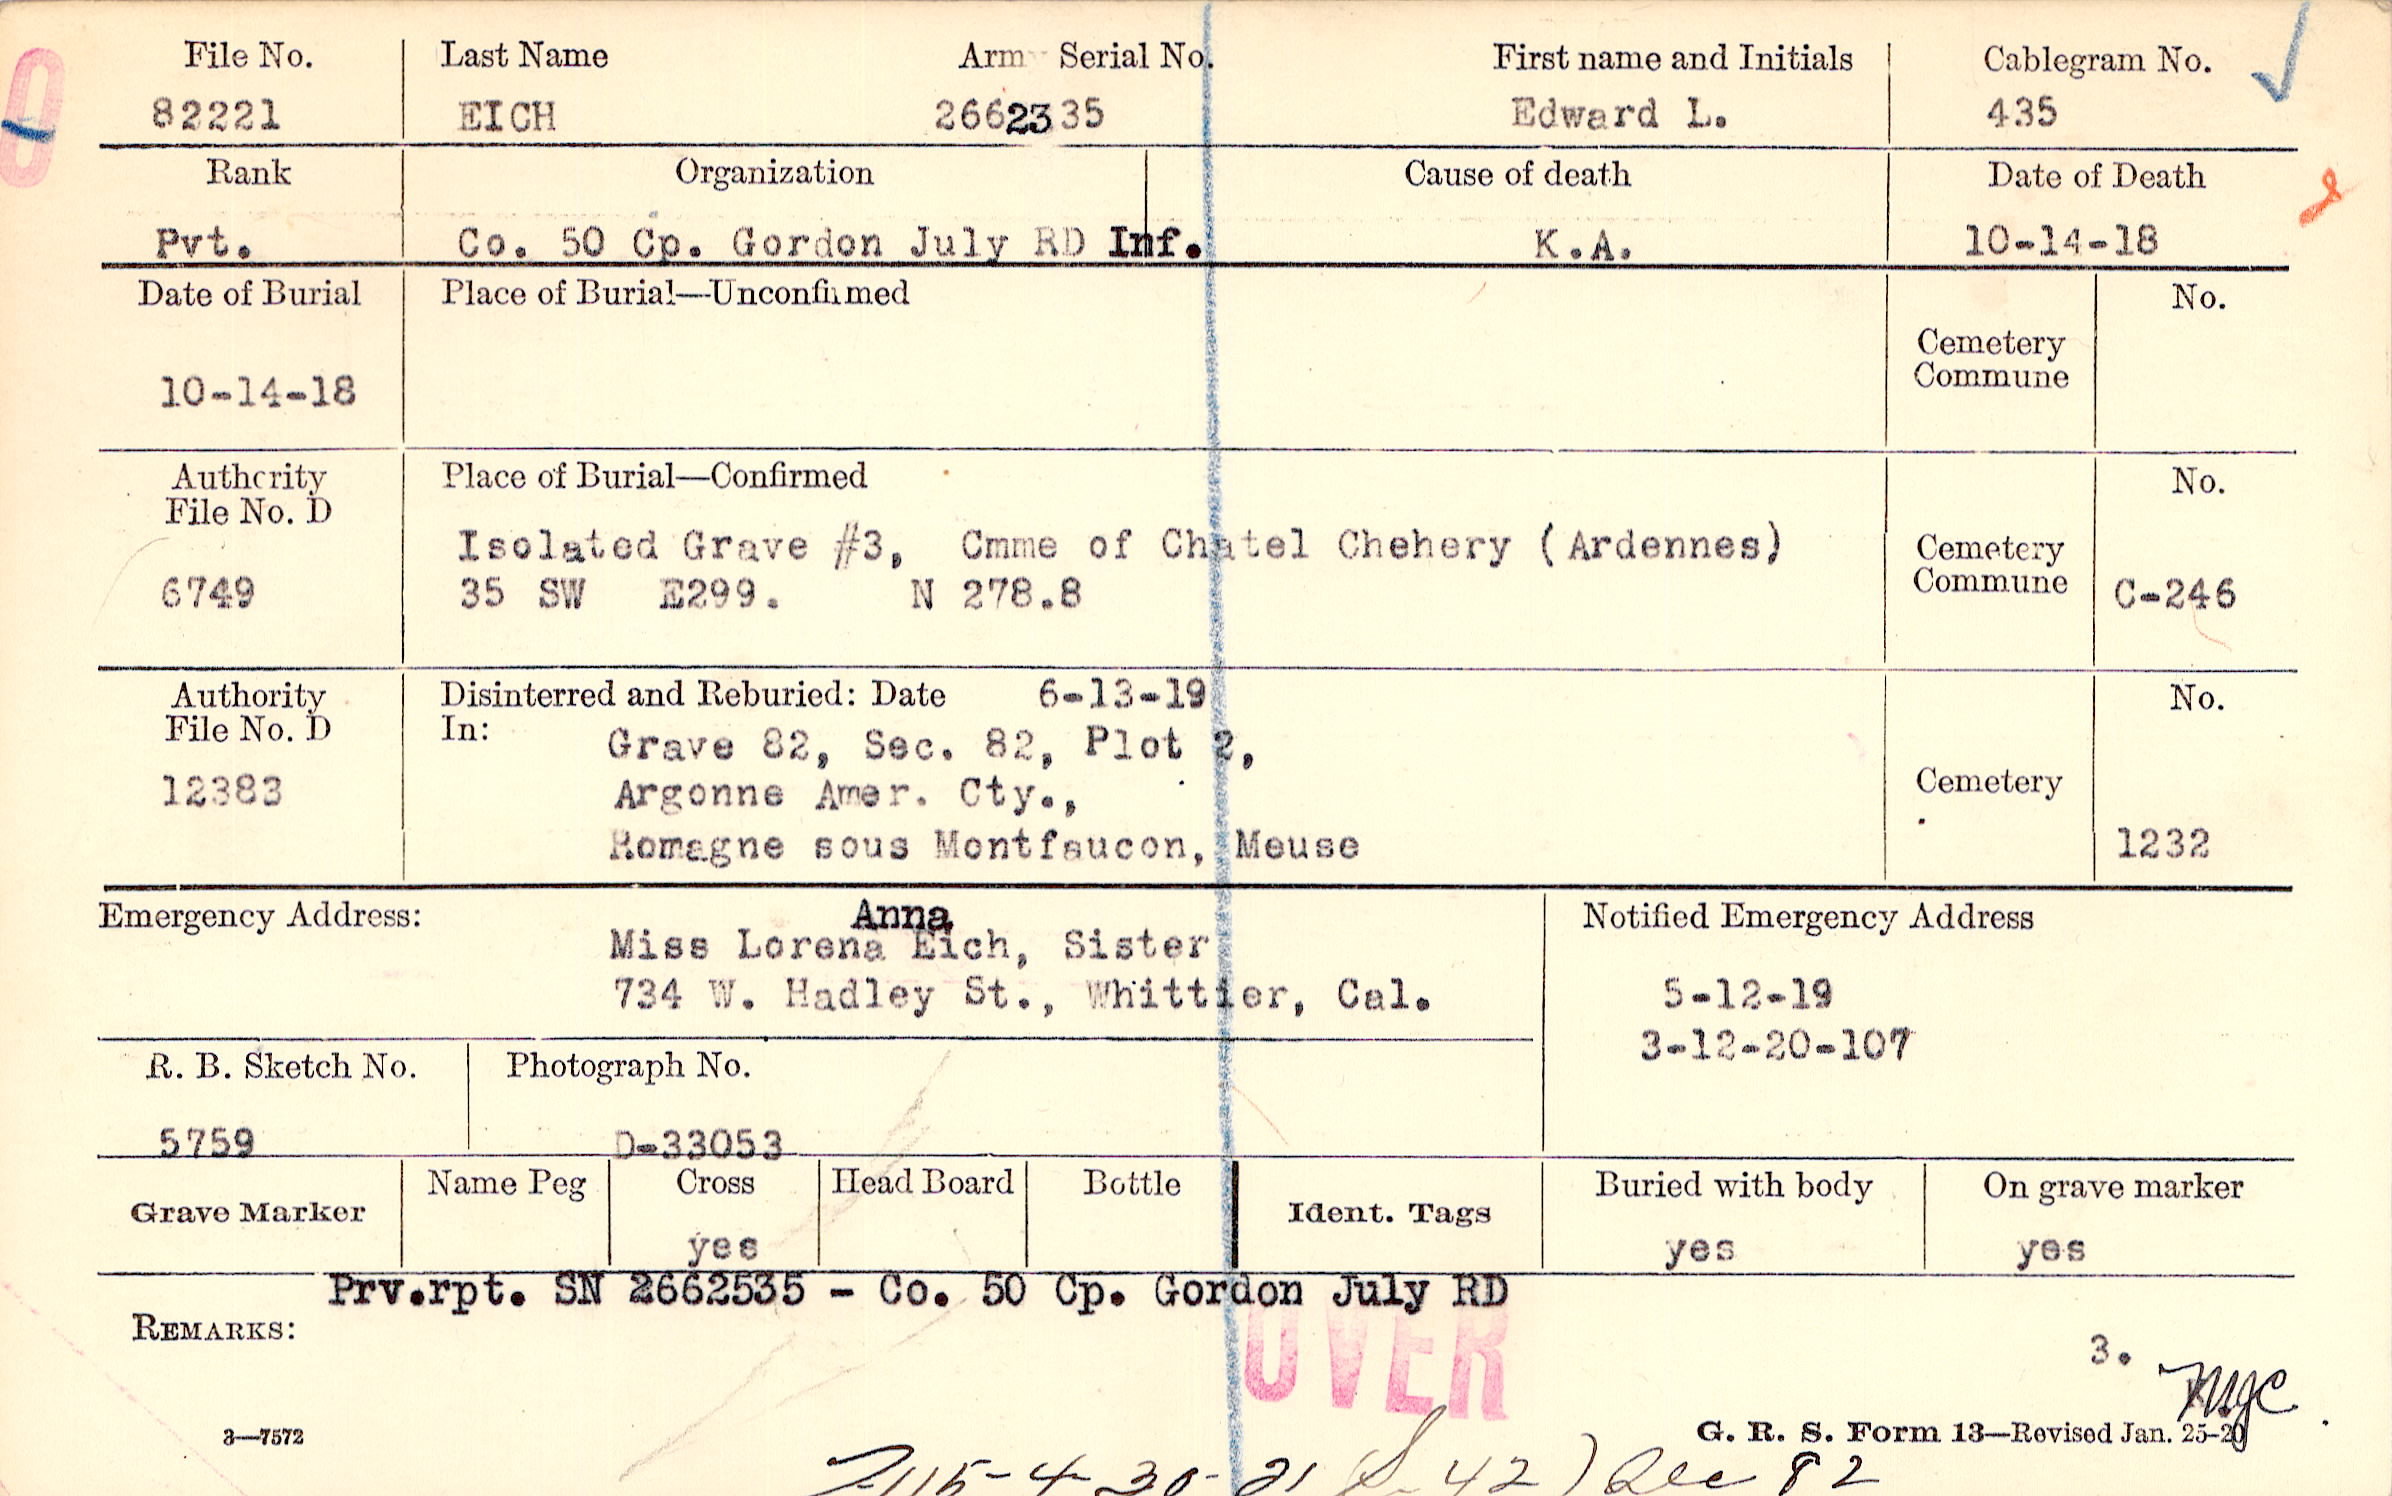 File No. Last Name Army Serial No. First name and Initials Cablegram No.
82221 EICH 2662335 Edward L. 435
Rank Organization Cause of death Date of Death
Pvt. Co. 50 Cp. Gordon July RD Inf. K.A. 10-14-18
Date of Burial Place of Burial—Unconfirmed No.
Cemetery
Commune
10-14-18
Authority Place of Burial—Confirmed No.
File No. D
Isolated Grave #3, Cmme of Chatel Chehery (Ardennes) Cemetery
6749 35 SW E299. N 278.8 Commune C-246
Authority Disinterred and Reburied: Date 6-13-19 No.
File No. D In: Grave 82, Sec. 82, Plot 2,
12383 Argonne Amer. Cty., Cemetery
Romagne sous Montfaucon, Meuse 1232
Emergency Address: Anna Notified Emergency Address
Miss Lorena Eich, Sister
734 W. Hadley St., Whittier, Cal. 5-12-19
3-12-20-107
R. B. Sketch No. Photograph No.
5759 D-33053
Grave Marker Name Peg Cross Head Board Bottle Ident. Tags Buried with body On grave marker
yes yes yes
Prv.rpt. SN 2662535 - Co. 50 Cp. Gordon July RD
REMARKS: OVER 3.
3—7572 G. R. S. Form 13—Revised Jan. 25-20
4-30-21 42) Dec 82